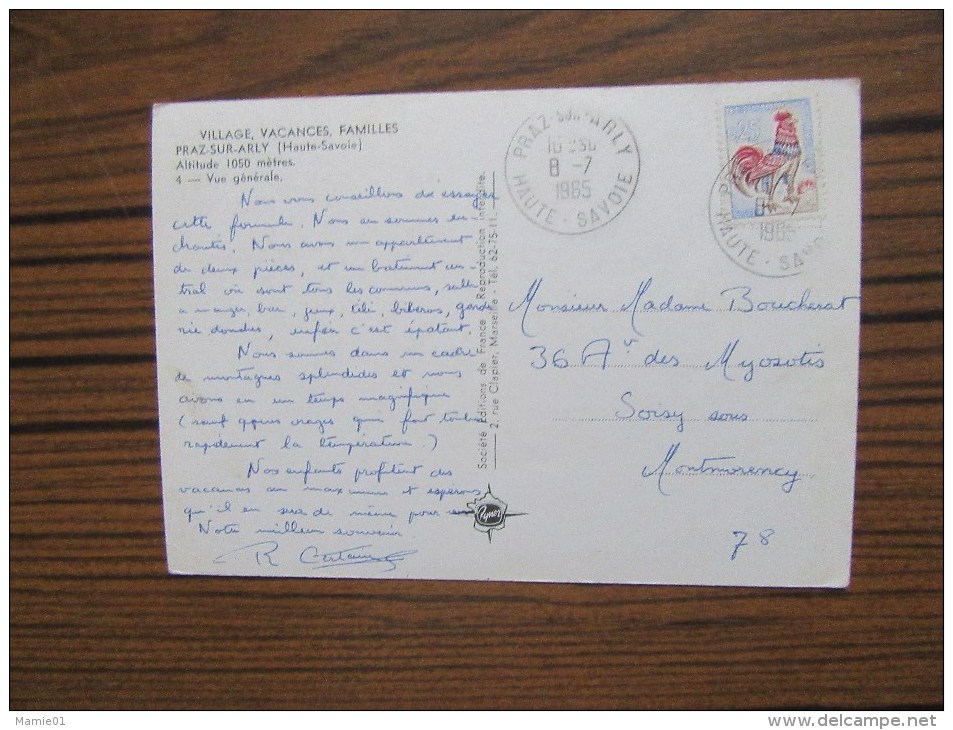 VILLAGE, VACANCES, FAMILLES
PRAZ-SUR-ARLY (Haute-Savoie)
Altitude 1050 mètres.
4 — Vue générale.
Nous vous conseillons de essayer
cette formule. Nous en sommes en-
chantés. Nous avons un appartement
de deux pièces, et un batiment cen-
tral où sont tous les communs, salle
a manger, bar, jeux, télé, biberos, garde
rie d'ondes, enfin c'est épatant.
Nous sommes dans un cadre
de montagnes splendides et nous
avons eu un temps magnifique
(sauf gros orages qui font tomber
rapidement la température)
Nos enfants profitent des
vacances au maximum et espérons
qu'il en sera de même pour
Notre meilleur souvenir.
R
Société Editions de France Reproduction interdite.
2, rue Clapier, Marseille - Tél. 62-75-11.
Rymer
PRAZ-SUR-ARLY
8 -7
1965
HAUTE-SAVOIE
0,25
8 -7
1965
HAUTE-SAVO
Monsieur Madame Boucherat
36 A des Myosotis
Soisy sous
Montmorency
78
Mamie01
http://www.delcampe.net